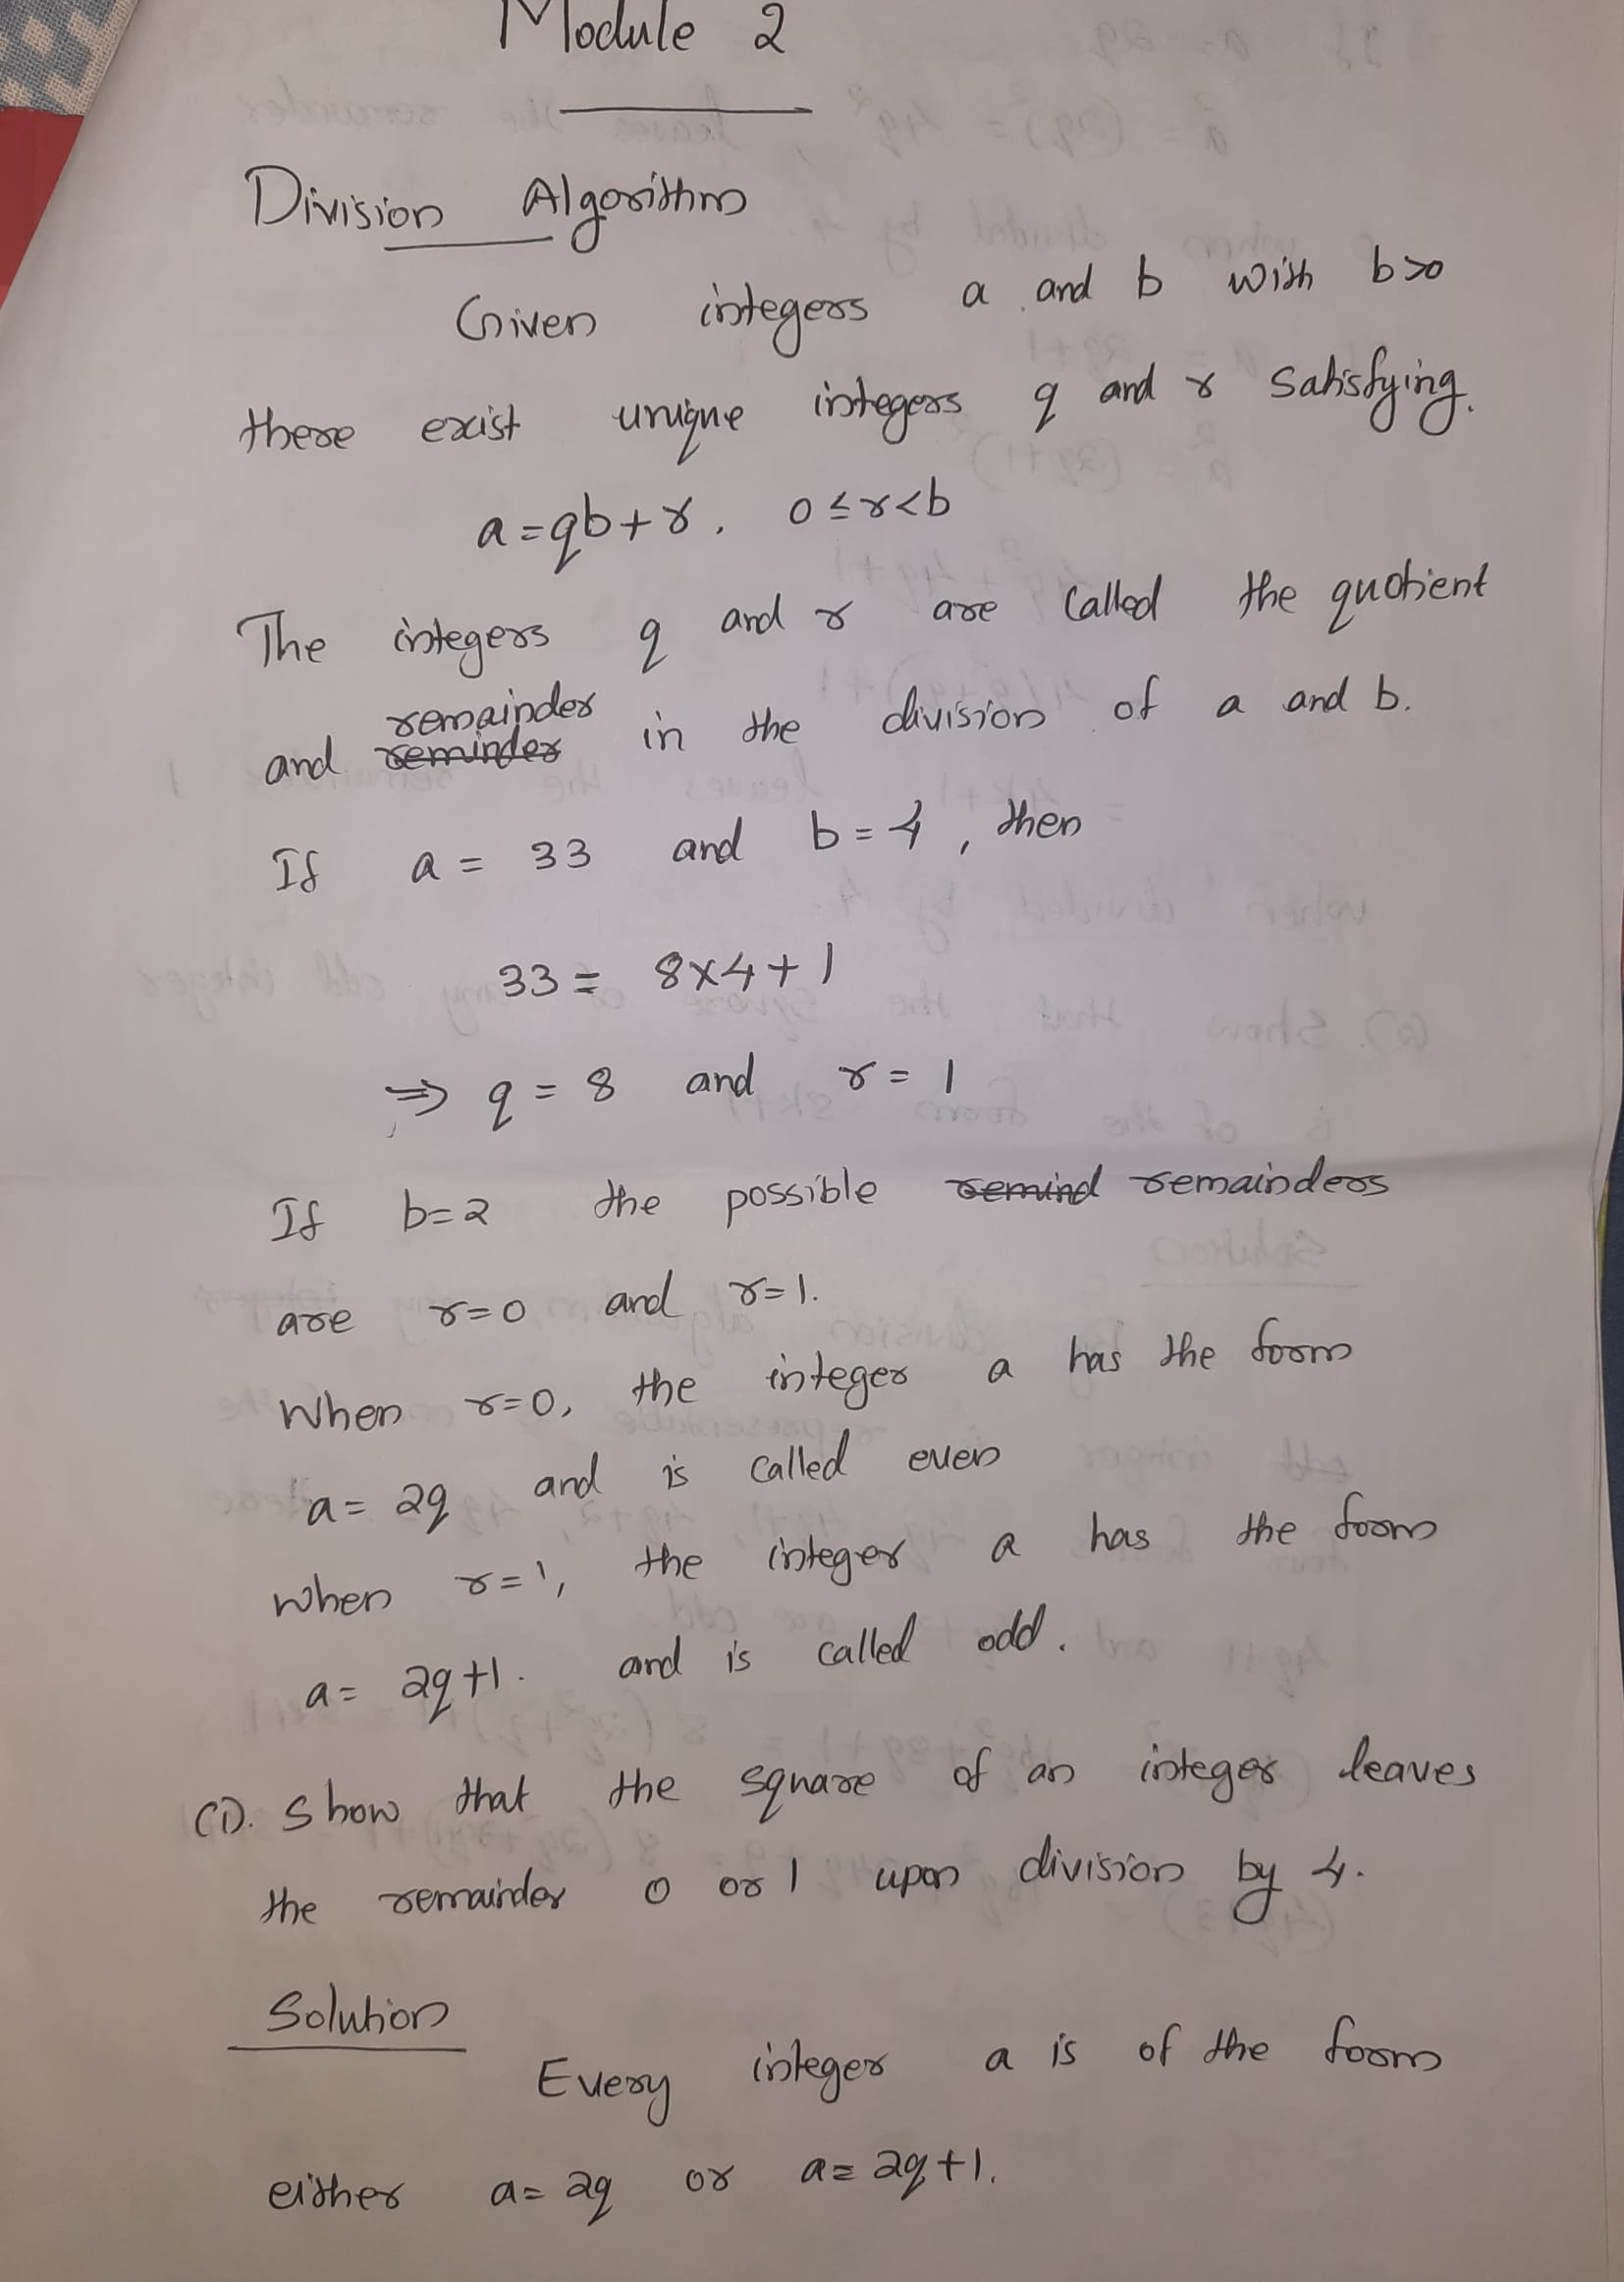 Module 2
Division Algorithm
Given integers a and b with b>0
there exist unique integers q and r satisfying.
a=qb+r, 0≤r<b
The integers q and r are called the quotient
remainder
and reminder in the division of a and b.
If a = 33 and b = 4, then
33 = 8x4+1
⇒ q = 8 and r = 1
If b=2 the possible remind remainders
are r=0 and r=1.
When r=0, the integer a has the form
a= 2q and is called even
when r=1, the integer a has the form
a= 2q+1. and is called odd.
(1). Show that the square of an integer leaves
the remainder 0 or 1 upon division by 4.
Solution
Every integer a is of the form
either a= 2q or a= 2q+1.